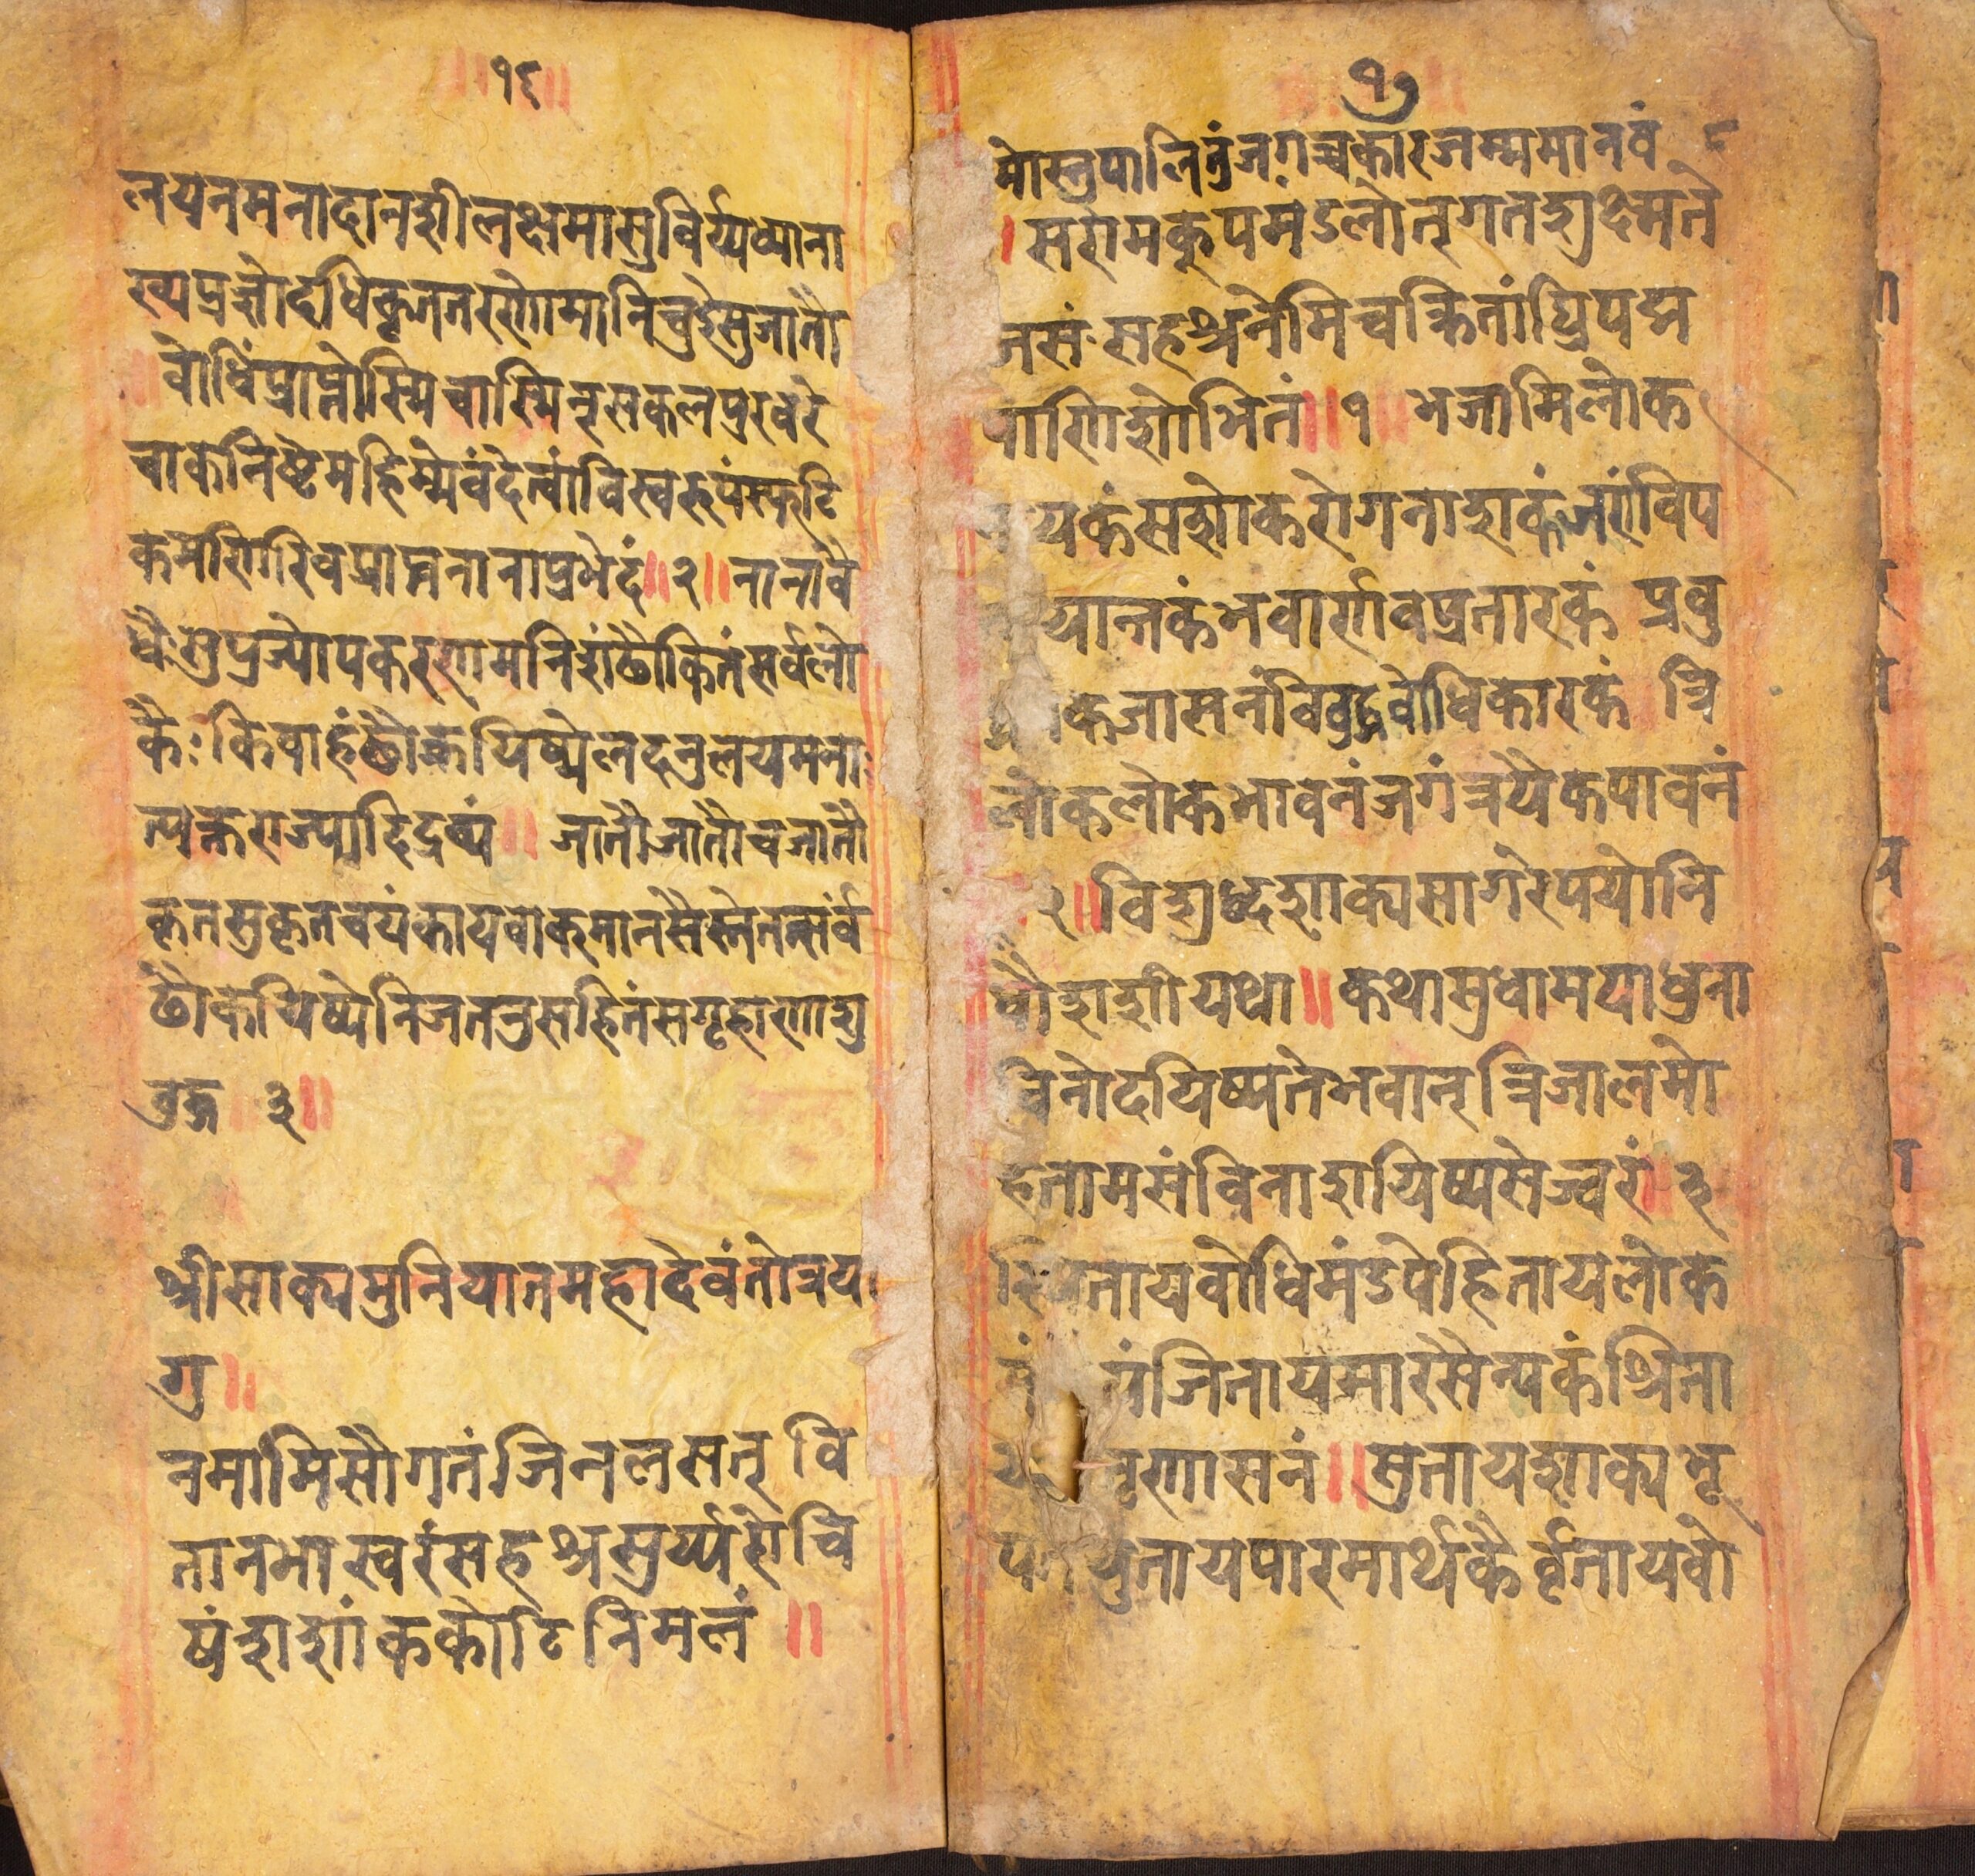 १६
लयनमनादानशीलक्षमासुविर्य्यध्याना
ख्यप्रज्ञोदधिकृततरणोमानिचुडेसुजातौ
वोधिंप्राप्नोस्मिचास्मिन्सकलपुरवरे
चाकनिष्टेमहिम्मेवंदेत्वांविस्वरुपंस्फटि
कमणिरिवप्राप्तनानाप्रभेदं॥२॥नानावि
धैःसुप्रज्योपकरणमनिशंढौकितंसर्वलो
कैःकिंवाहंढौकयिष्येलदनुलयमना
त्यक्तराज्यादिद्रव्यं॥जातौजातौचजातौ
कृतसुकृतचयंकायवाक्मानसैस्मेतत्सर्वं
ढौकयिष्येनिजतनुसहितंसगृहाणाशु
वुद्ध ३॥
श्रीसाक्यमुनियातमहादेवंतोत्रय
गु॥
नमामिसौगतंजिनलसत् वि
तानभास्वरंसहश्रसुर्य्यरोचि
षंशशांककोटिनिमलं ॥
१७
मोस्तुपालितुंजगच्चकारजम्ममानवं
।सरोमकुपमंडलोन्गतद्युक्ष्मते
जसंसहश्रनेमिचक्रितांघ्रिपद्म
पाणिशोभितं॥१ भजामिलोक
यकंसशोकरोगनाशकंजरांविप
यान्तकंभवार्णवप्रतारकं प्रवु
कजासनंविवुद्धवोधिकारकं त्रि
लोकलोकभावनंजगंत्रयैकपावनं
२॥विशुध्दशाक्यसागरेपयोनि
धौशशीयथा॥कथासुधामयाधुना
विनोदयिष्यतेभवान्त्रिजालमो
हतामसंविनाशयिष्यसेज्वरं॥३
स्थितायवोधिमंडपेहितायलोक
यंजिनायमारसैन्यकंश्रिता
तृणासनं॥सुतायशाक्यभू
युतायपारमार्थकैर्वृतायवो